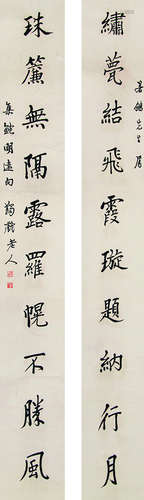 繡甍結飛霞璇題納行月
先生
珠簾無隔露羅幌不勝風
集鮑明遠句
老人